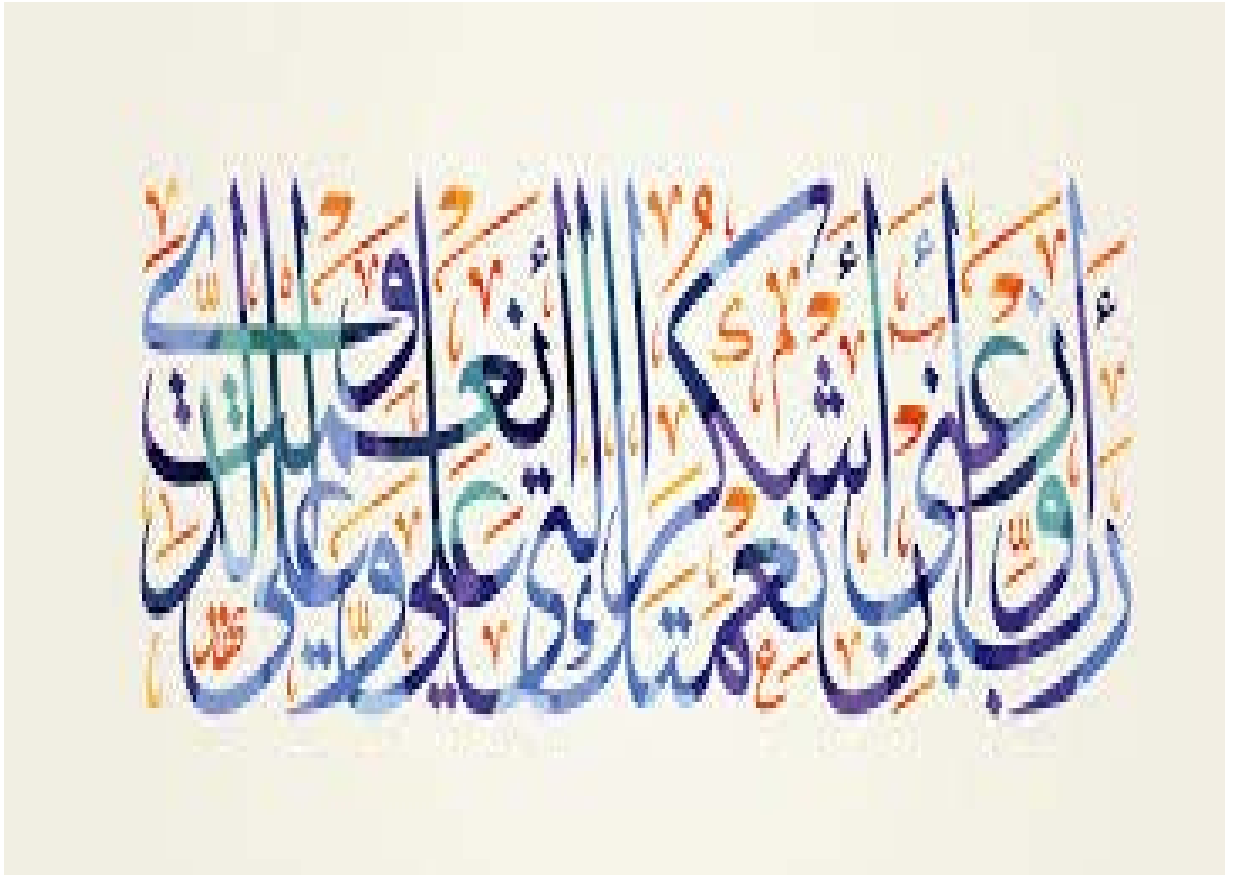 رب أوزعني أن أشكر نعمتك التي أنعمت علي وعلى والدي